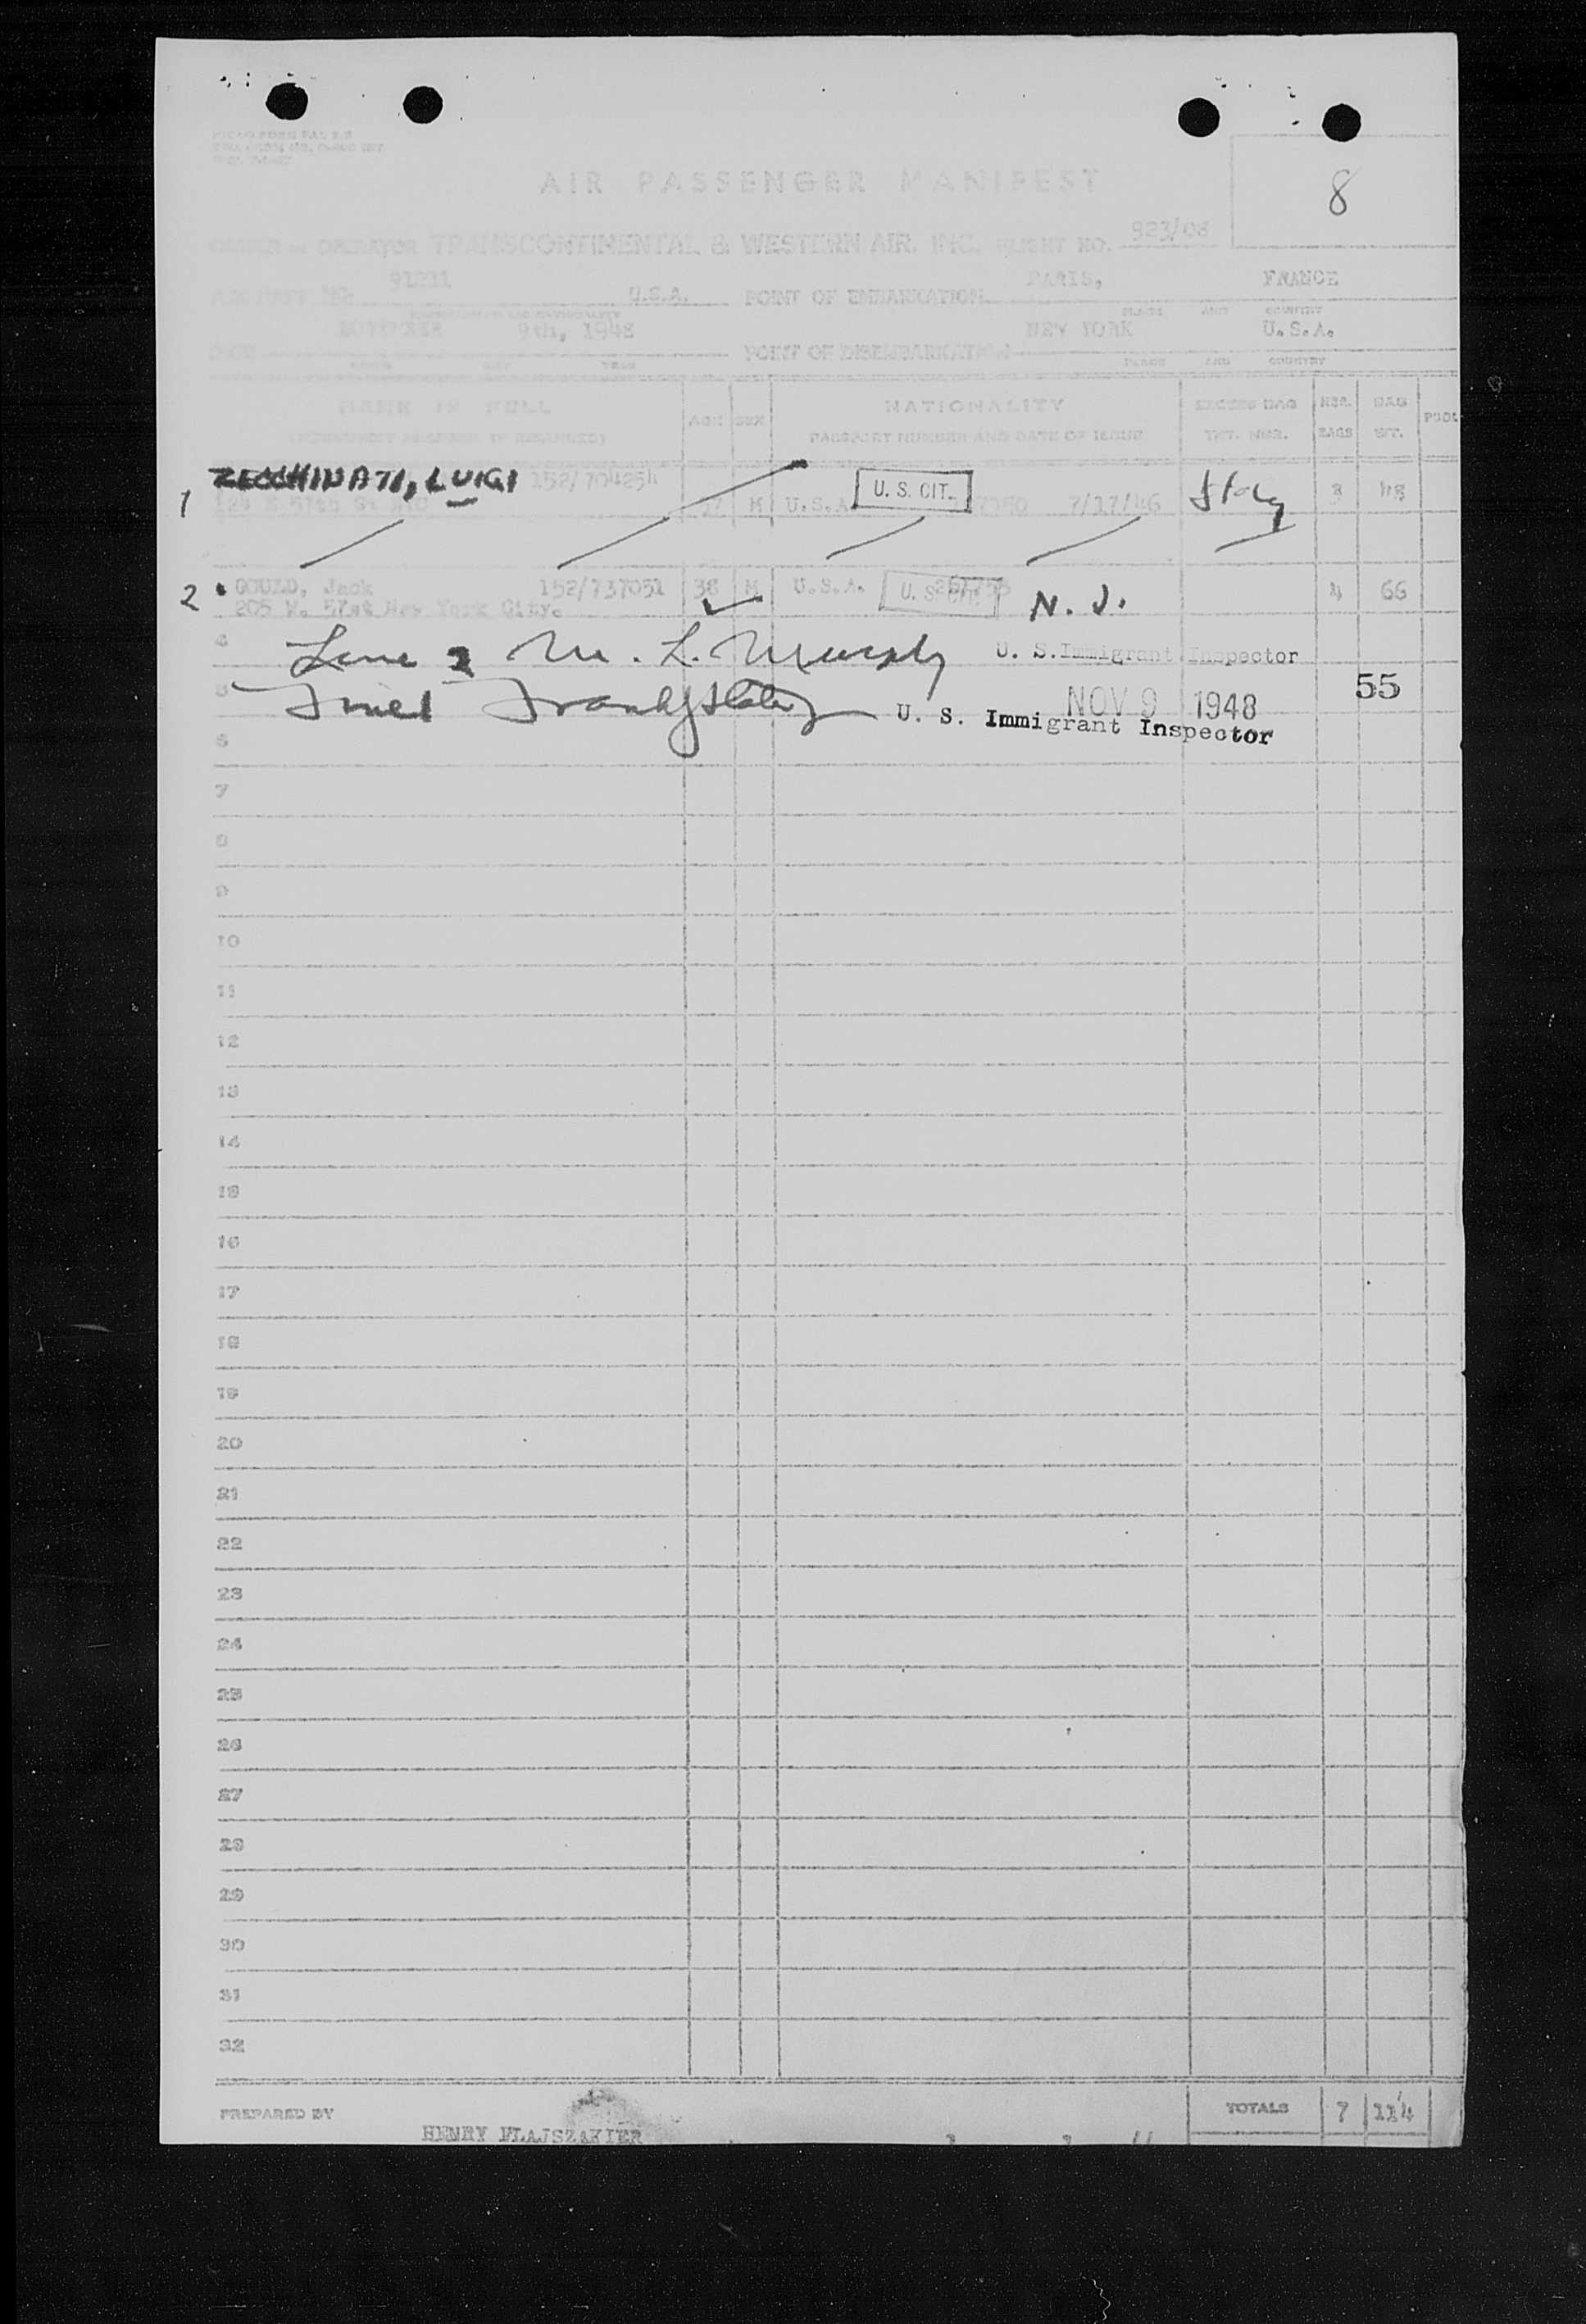 AIR PASSENGER MANIFEST
8
OWNER OR OPERATOR TRANSCONTINENTAL & WESTERN AIR, INC. FLIGHT NO. 923/08
91211 U.S.A. POINT OF EMBARKATION PARIS, FRANCE
PLACE AND COUNTRY
NOVEMBER 9th, 1948 POINT OF DISEMBARKATION NEW YORK U.S.A.
PLACE AND COUNTRY
NAME IN FULL AGE SEX NATIONALITY EXCESS BAG NBR. BAG
PASSPORT NUMBER AND DATE OF ISSUE TKT. NBR. BAGS WT.
1 ZECCHINATI, LUIGI 152/704254
57th St M U.S.A. U. S. CIT. 7/17/46 Italy 3 48
2 GOULD, Jack 152/737051 38 M U.S.A. U. S. CIT. N. J. 4 66
205 W. 57st New York City.
4 Line 2 M. L. Murphy U. S. Immigrant Inspector
5 NOV 9 1948 55
Line 1 U. S. Immigrant Inspector
6
7
8
9
10
11
12
13
14
15
16
17
18
19
20
21
22
23
24
25
26
27
28
29
30
31
32
PREPARED BY TOTALS 7 114
HENRY FLAJSZAKIER